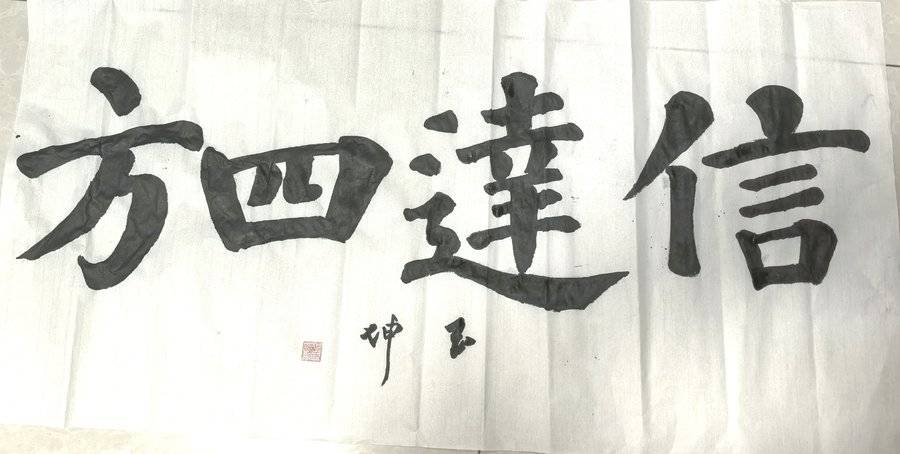 信達四方
玉坤